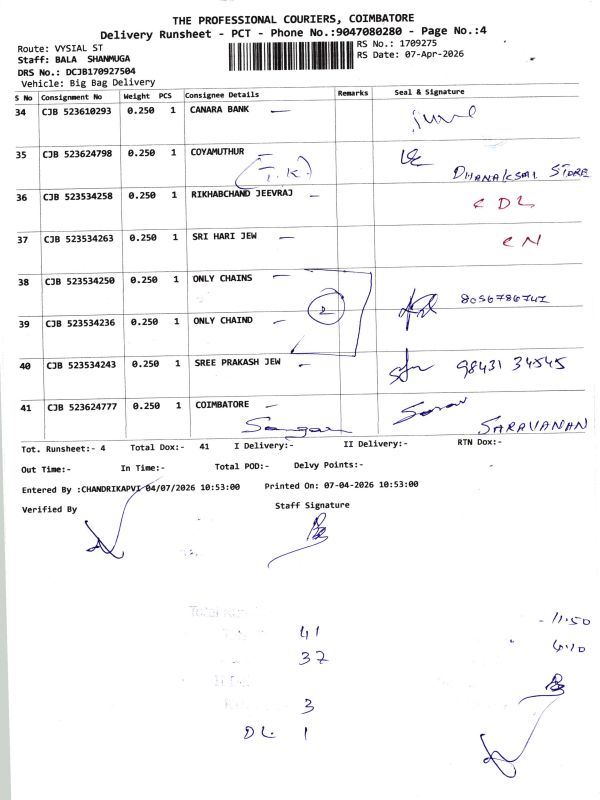 THE PROFESSIONAL COURIERS, COIMBATORE
Delivery Runsheet - PCT - Phone No.:9047080280 - Page No.:4
Route: VYSIAL ST
RS No.: 1709275
Staff: BALA SHANMUGA
RS Date: 07-Apr-2026
DRS No.: DCJB170927504
Vehicle: Big Bag Delivery
S No Consignment No Weight PCS Consignee Details Remarks Seal & Signature
34 CJB 523610293 0.250 1 CANARA BANK —
35 CJB 523624798 0.250 1 COYAMUTHUR
(T.K.) DHANALKSMI STORE
36 CJB 523534258 0.250 1 RIKHABCHAND JEEVRAJ — CDL
37 CJB 523534263 0.250 1 SRI HARI JEW — CN
38 CJB 523534250 0.250 1 ONLY CHAINS —
2 8056786741
39 CJB 523534236 0.250 1 ONLY CHAIND —
40 CJB 523534243 0.250 1 SREE PRAKASH JEW — 98431 34545
41 CJB 523624777 0.250 1 COIMBATORE —
SARAVANAN
Tot. Runsheet:- 4 Total Dox:- 41 I Delivery:- II Delivery:- RTN Dox:-
Out Time:- In Time:- Total POD:- Delvy Points:-
Entered By :CHANDRIKAPVI 04/07/2026 10:53:00 Printed On: 07-04-2026 10:53:00
Verified By Staff Signature
41 - 11.50
37 4.10
3
DL 1